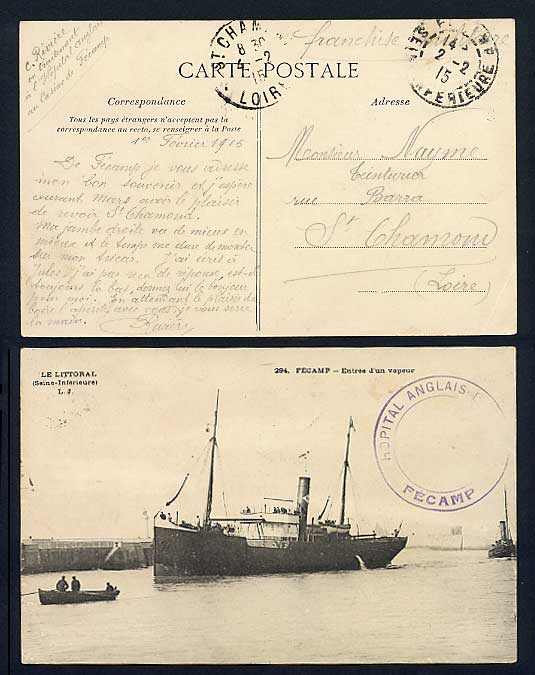 C. Rivière
en traitement
à l'hôpital anglais
au Casino de Fécamp
franchise militaire
CARTE POSTALE
ST CHAMOND
8 30
4 -2
15
LOIRE
14
2 -2
15
INFERIEURE
Correspondance
Adresse
Tous les pays étrangers n'acceptent pas la
correspondance au recto, se renseigner à la Poste
1er Février 1915
De Fécamp je vous adresse
mon bon souvenir et j'espère
courant Mars avoir le plaisir
de revoir St Chamond.
Ma jambe droite va de mieux en
mieux et le temps me dure de monter
sur mon J'ai écris à
Jules j'ai pas reçu de réponse, est-il
toujours la bas, donner lui le bonjour
pour moi. En attendant le plaisir de
boire l'apéritif avec vous je vous serre
la main.
Rivière
Monsieur Nayme
Teinturier
rue Barra
St Chamond
(Loire)
LE LITTORAL
(Seine-Inférieure)
L. J.
294. FÉCAMP — Entrée d'un vapeur
HOPITAL ANGLAIS
FÉCAMP